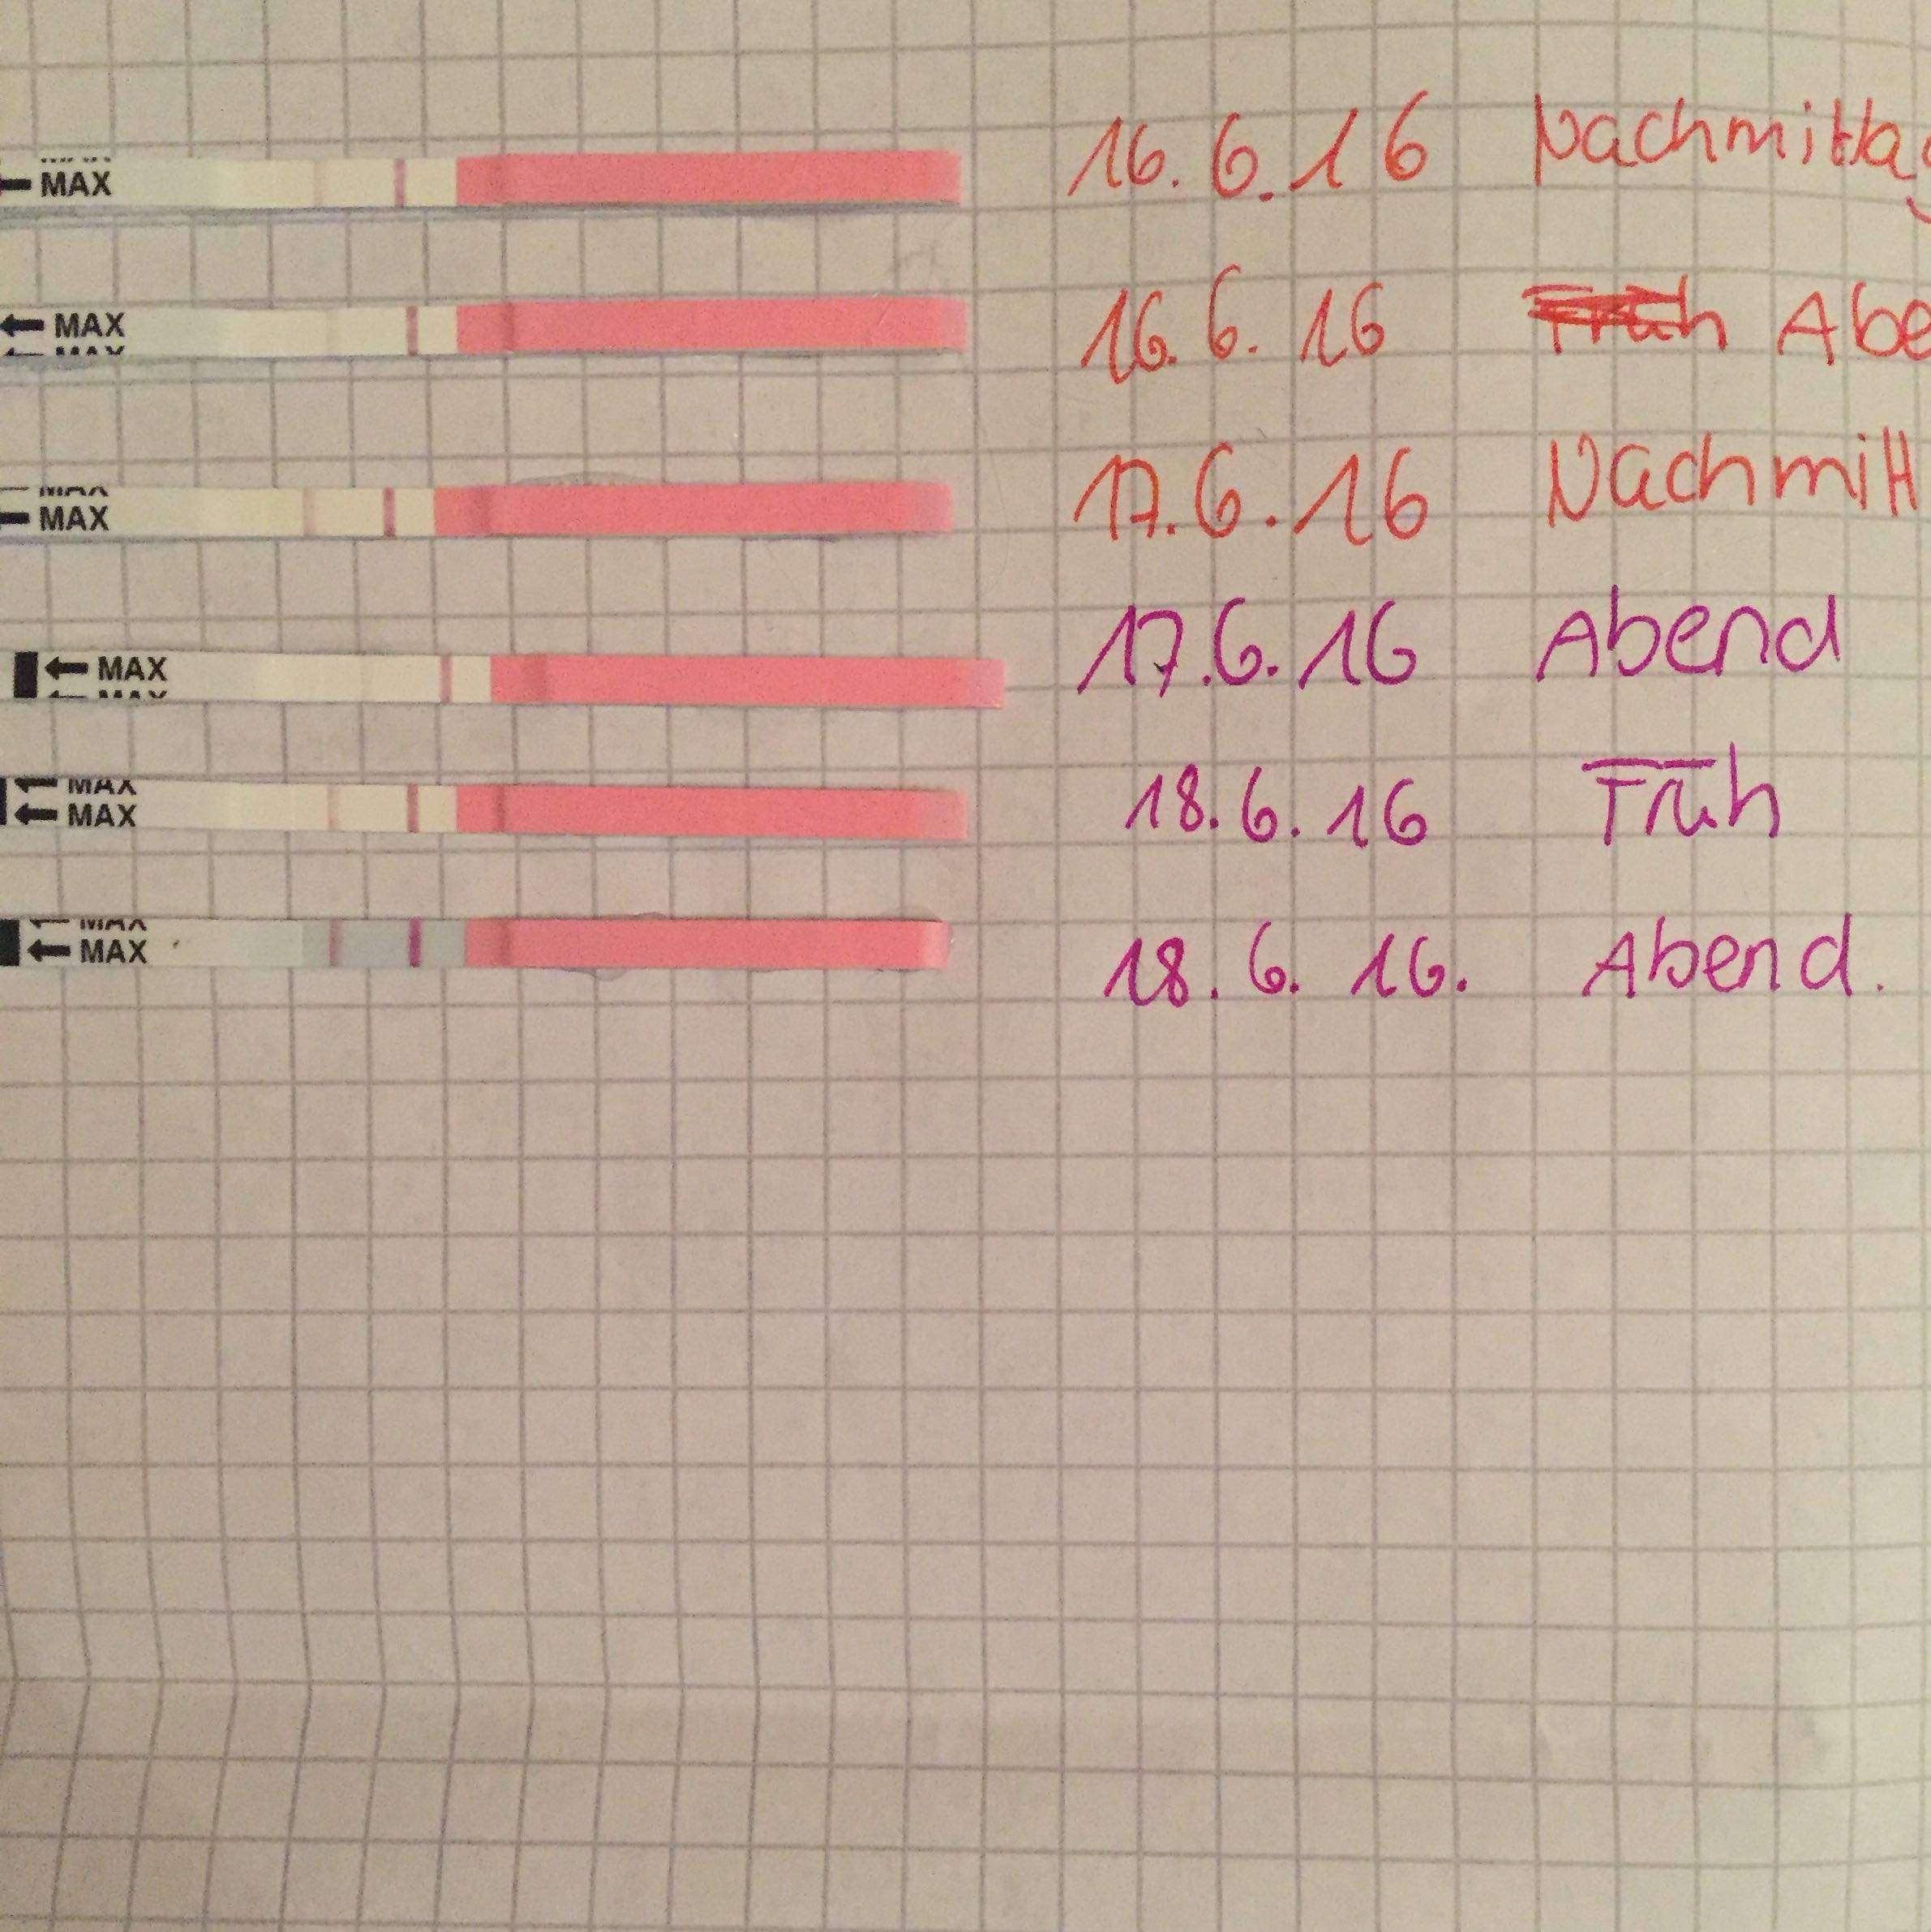 MAX
MAX 16.6.16 Nachmittag
MAX 16.6.16 Früh Abe
MAX
MAX
MAX 17.6.16 Nachmitt
MAX 17.6.16 Abend
MAX
MAX
MAX 18.6.16 Früh
MAX
MAX 18.6.16. Abend.